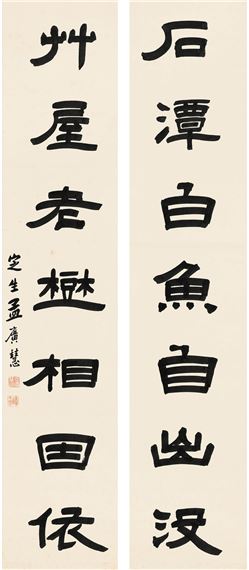 石潭白魚自出没
艸屋老樾相因依
定生孟廣慧